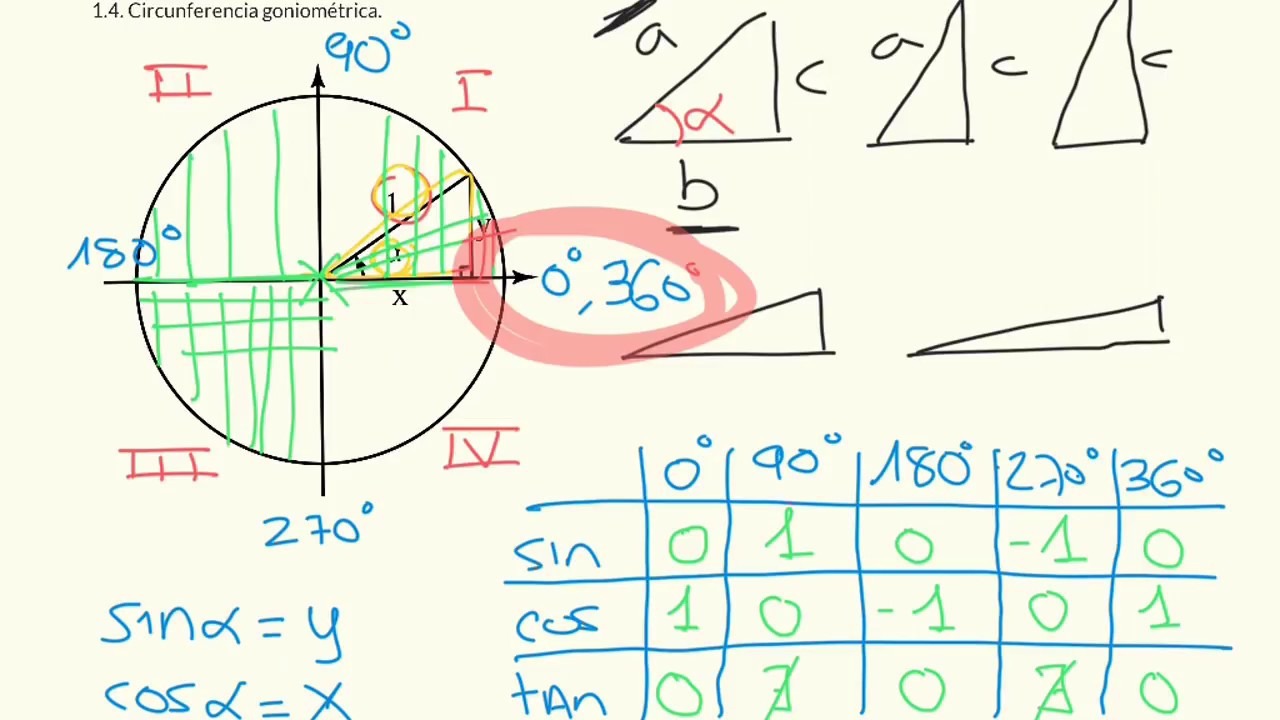 1.4. Circunferencia goniométrica.
90°
II
I
1
y
180°
0°, 360°
x
III
IV
270°
a
c
α
b
a
c
c
0° 90° 180° 270° 360°
sin 0 1 0 -1 0
cos 1 0 -1 0 1
tAn 0 ∄ 0 ∄ 0
sin α = y
cos α = x